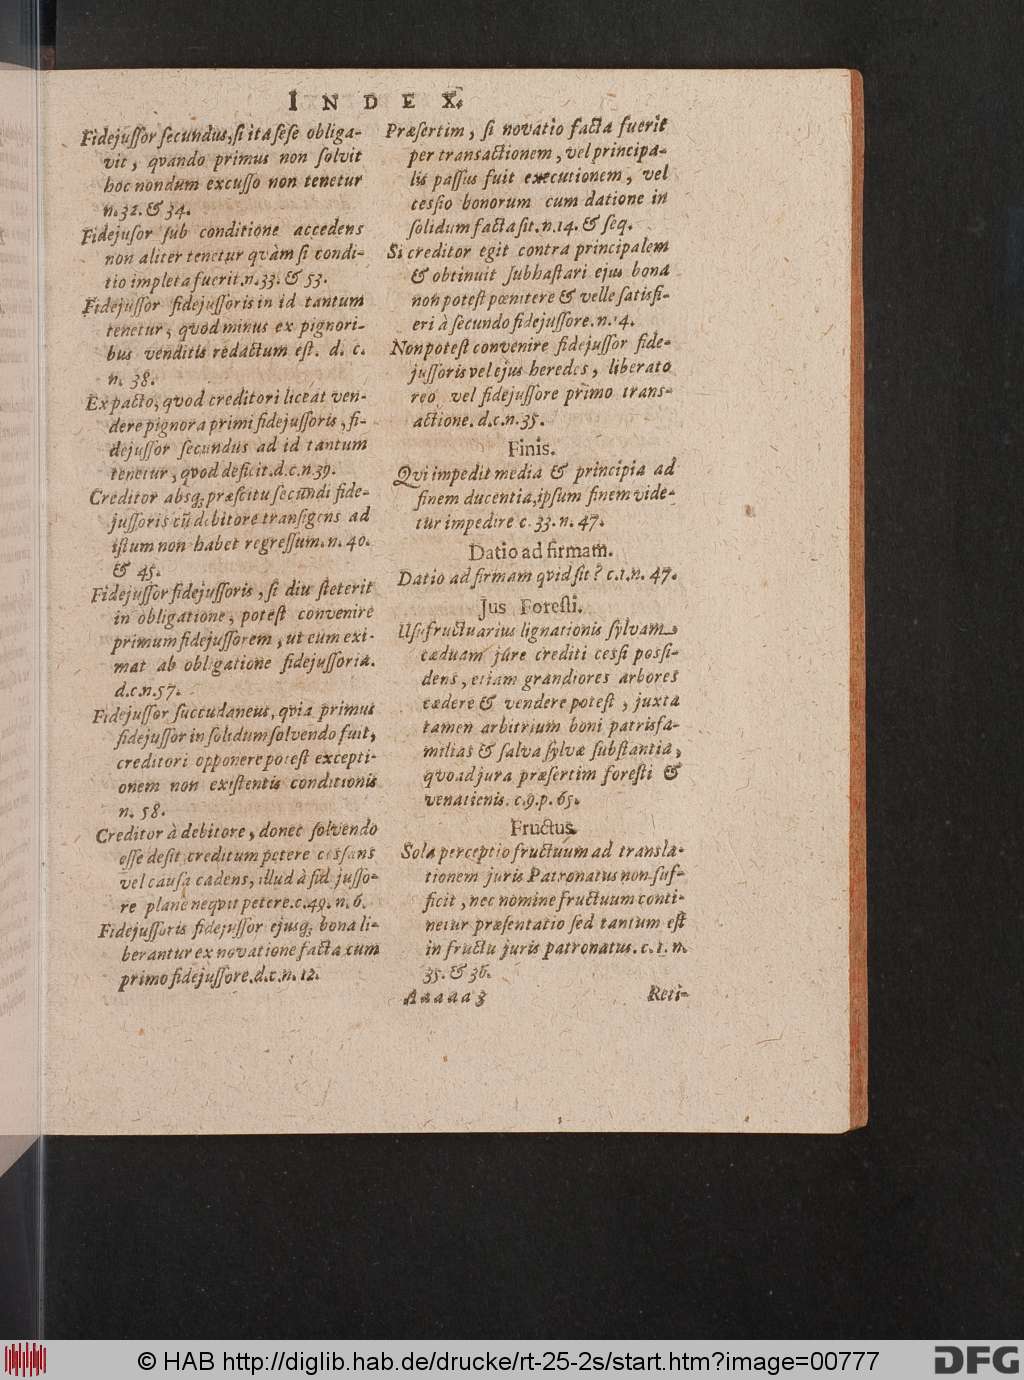 INDEX.
Fidejussor secundus, si ita sese obliga-
vit, qvando primus non solvit
hoc nondum excusso non tenetur
n. 32. & 34.
Fidejusor sub conditione accedens
non aliter tenetur qvàm si condi-
tio impleta fuerit. n. 33. & 53.
Fidejussor fidejussoris in id tantum
tenetur, qvod minus ex pignori-
bus venditis redactum est. d. c.
n. 38.
Ex pacto, qvod creditori liceat ven-
dere pignora primi fidejussoris, fi-
dejussor secundus ad id tantum
tenetur, qvod deficit. d. c. n 39.
Creditor absq; præscitu secundi fide-
jussoris cū debitore transigens ad
istum non habet regressum. n. 40.
& 45.
Fidejussor fidejussoris, si diu steterit
in obligatione, potest convenire
primum fidejussorem, ut eum exi-
mat ab obligatione fidejussoria.
d. c. n. 57.
Fidejussor succudaneus, qvia primus
fidejussor in solidum solvendo fuit,
creditori opponere potest excepti-
onem non existentis conditionis
n. 58.
Creditor à debitore, donec solvendo
esse desit creditum petere cessans
vel causa cadens, illud à fidejusso-
re planè neqvit petere. c. 49. n. 6.
Fidejussoris fidejussor ejusq; bona li-
berantur ex novatione facta cum
primo fidejussore. d. c. n. 12.
Præsertim, si novatio facta fuerit
per transactionem, vel principa-
lis passus fuit executionem, vel
cessio bonorum cum datione in
solidum facta sit. n. 14. & seq.
Si creditor egit contra principalem
& obtinuit subhastari ejus bona
non potest pœnitere & velle satisfi-
eri à secundo fidejussore. n. 4.
Non potest convenire fidejussor fide-
jussoris vel ejus heredes, liberato
reo vel fidejussore primo trans-
actione. d. c. n. 35.
Finis.
Qvi impedit media & principia ad
finem ducentia, ipsum finem vide-
tur impedire c. 33. n. 47.
Datio ad firmam.
Datio ad firmam qvid sit? c. 1. n. 47.
Jus Foresti.
Usufructuarius lignationis sylvam
cæduam jûre crediti cessi possi-
dens, etiam grandiores arbores
cædere & vendere potest, juxta
tamen arbitrium boni patrisfa-
milias & salva sylvæ substantia,
qvoad jura præsertim foresti &
venationis. c. 9. p. 65.
Fructus.
Sola perceptio fructuum ad transla-
tionem juris Patronatus non suf-
ficit, nec nomine fructuum conti-
netur præsentatio sed tantum est
in fructu juris patronatus. c. 1. n.
35. & 36.
Aaaaa 3
Reti-
© HAB http://diglib.hab.de/drucke/rt-25-2s/start.htm?image=00777
DFG